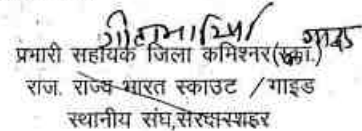 गाइड
प्रभारी सहायक जिला कमिश्नर(स्का.)
राज. राज्य भारत स्काउट /गाइड
स्थानीय संघ,सरदारशहर